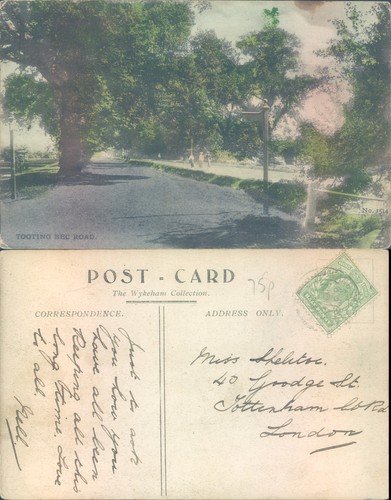 TOOTING BEC ROAD.
POST - CARD
The Wykeham Collection.
75p
CORRESPONDENCE.
ADDRESS ONLY.
Just to ask
you how you
have all been
keeping all this
long time. Love
to all.
Miss
40 Goodge St.
Tottenham Ct Rd
London